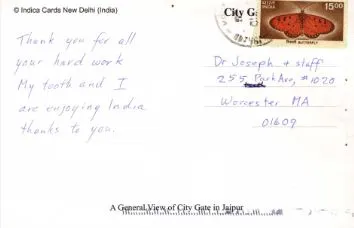 © Indica Cards New Delhi (India)
City G
1500
INDIA
BUTTERFLY
Thank you for all
your hard work
My tooth and I
are enjoying India
thanks to you.
Dr Joseph + staff
255 Park Ave, #1020
Worcester MA
01609
A General View of City Gate in Jaipur